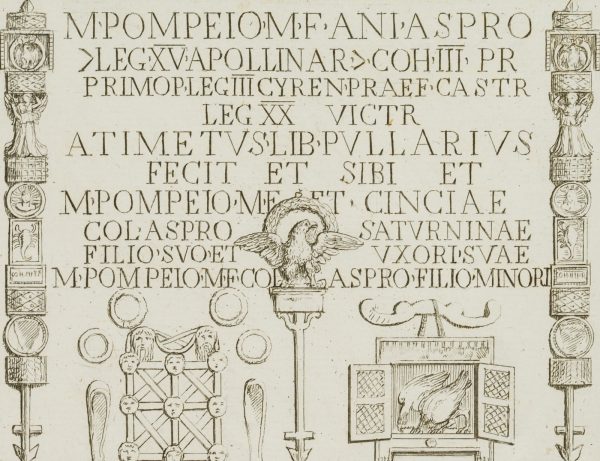 M·POMPEIO·M·F·ANI·ASPRO
>LEG·X̅V̅·APOLLINAR·>COH·I̅I̅I̅·PR
PRIMOP·LEG·I̅I̅I̅·CYREN·PRAEF·CASTR
LEG X̅X̅ VICTR
ATIMETVS·LIB·PVLLARIVS
FECIT ET SIBI ET
M·POMPEIO·M·F· ET· CINCIAE
COL·ASPRO SATVRNINAE
FILIO SVO·ET VXORI·SVAE
M·POMPEIO·M·F·COL ASPRO·FILIO·MINORI